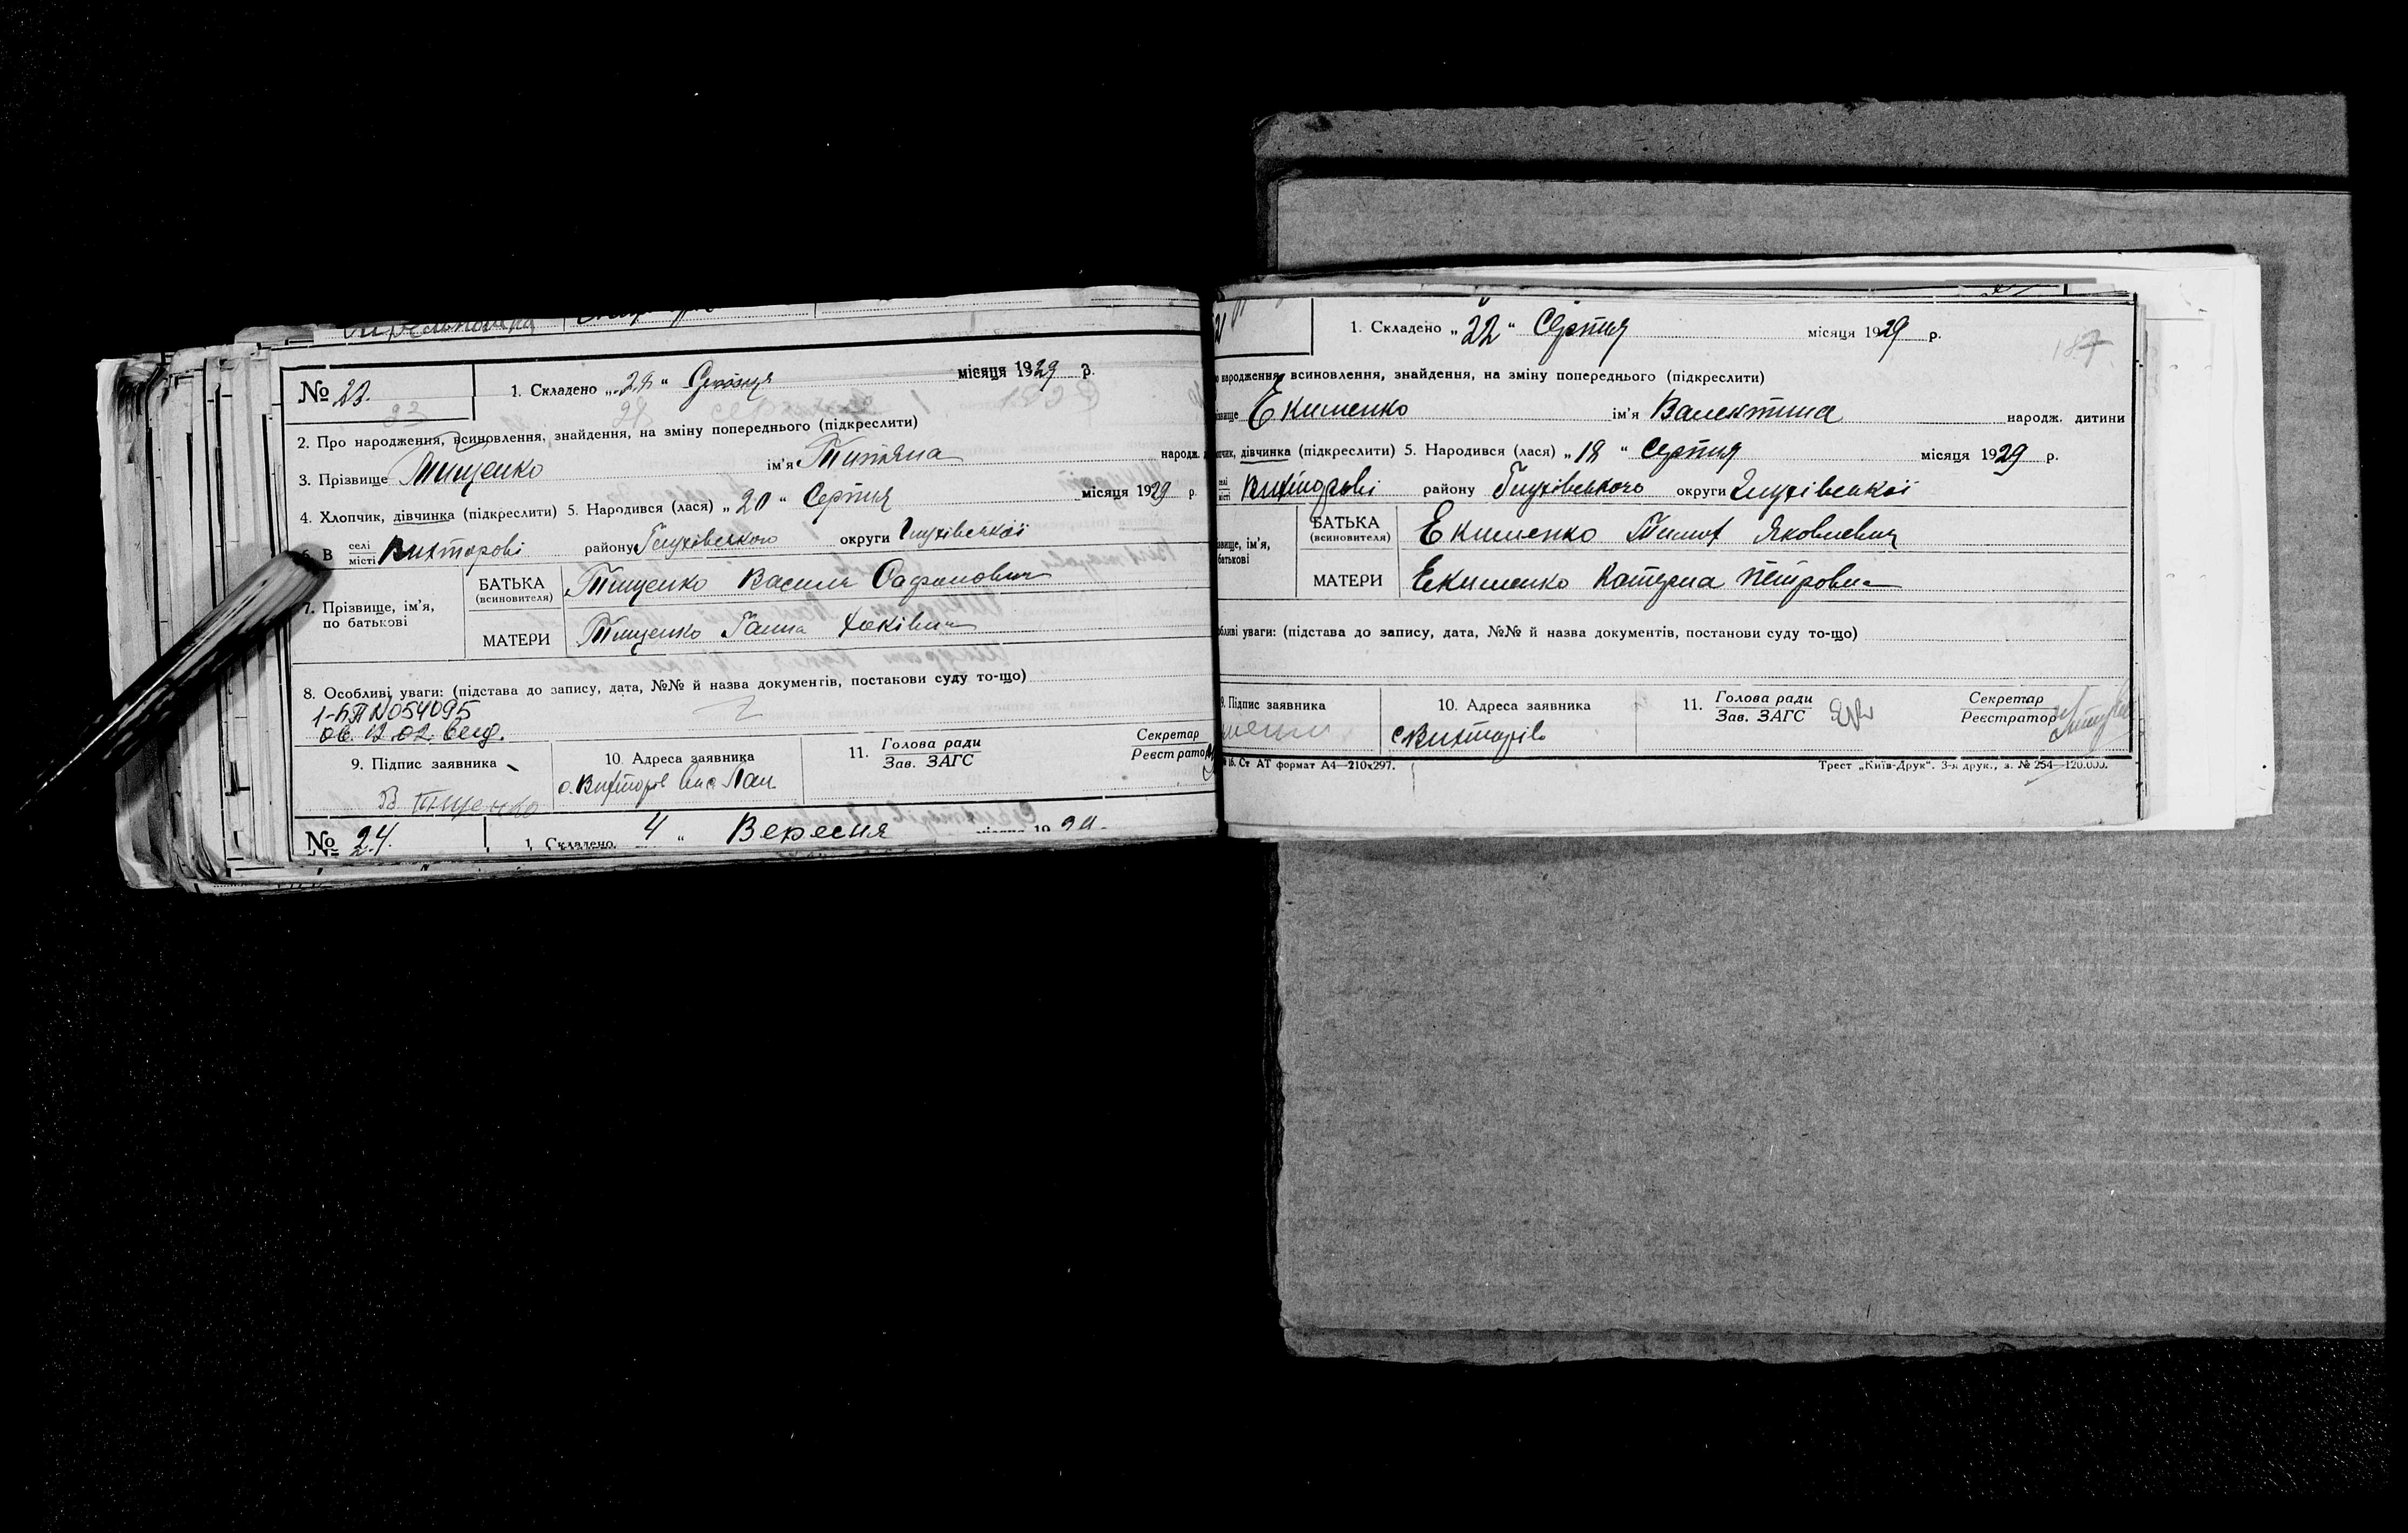 № 23.
1. Складено „28“ Серпня місяця 1929 р.
23
2. Про народження, всиновлення, знайдення, на зміну попереднього (підкреслити)
3. Прізвище Тищенко ім'я Титяна народж.
4. Хлопчик, дівчинка (підкреслити) 5. Народився (лася) „20“ Серпня місяця 1929 р.
6. В селі Вихторові району Глухівського округи Глухівської
місті
7. Прізвище, ім'я, по батькові
БАТЬКА (всиновителя) Тищенко Василь Сафонович
МАТЕРИ Тищенко Ганна
8. Особливі уваги: (підстава до запису, дата, №№ й назва документів, постанови суду то-що)
1-БП № 054095
06.12.02.
9. Підпис заявника
В Тищенко
10. Адреса заявника
с. Вихторів
11. Голова ради
Зав. ЗАГС
Секретар
Реєстратор
№ 24.
1. Складено 4 “ Вересня 1929
21
1. Складено „22“ Серпня місяця 1929 р.
187
народження, всиновлення, знайдення, на зміну попереднього (підкреслити)
Екименко ім'я Валентина народж. дитини
дівчинка (підкреслити) 5. Народився (лася) „18“ Серпня місяця 1929 р.
селі Вихторові району Глухівського округи Глухівської
місті
ім'я,
батькові
БАТЬКА (всиновителя) Екименко Тимох Яковлевич
МАТЕРИ Екименко Катерина Петровна
уваги: (підстава до запису, дата, №№ й назва документів, постанови суду то-що)
9. Підпис заявника
10. Адреса заявника
с Вихторів
11. Голова ради
Зав. ЗАГС
Секретар
Реєстратор
Ст АТ формат А4—210х297.
Трест „Київ-Друк“. 3-я друк., з. № 254—120.000.